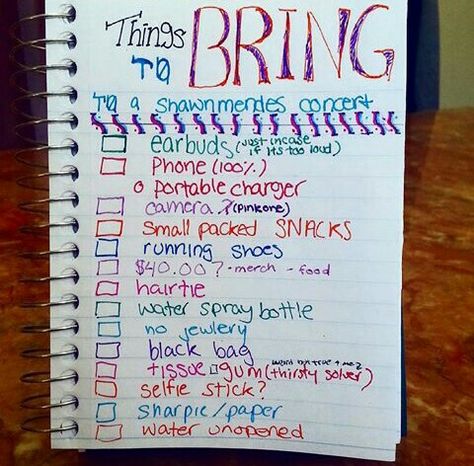 Things
TO BRING
TO a shawnmendes concert
earbuds (just incase
if its too loud)
Phone (100%)
portable charger
camera? (pink one)
Small packed SNACKS
running shoes
$40.00? - merch - food
hairtie
water spray bottle
no jewlery
black bag
tissue gum (thirsty solver)
selfie stick?
sharpie/paper
water unopened